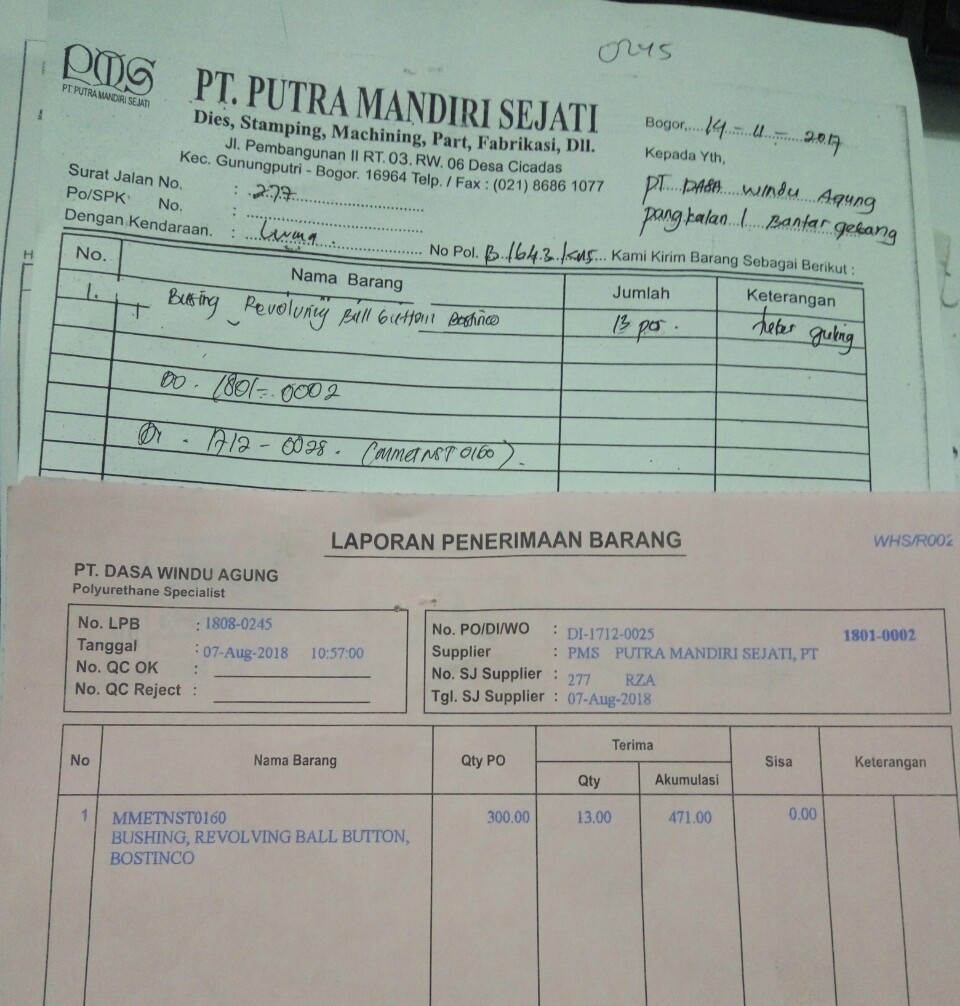 0245
PMS
PT. PUTRA MANDIRI SEJATI
PT. PUTRA MANDIRI SEJATI
Dies, Stamping, Machining, Part, Fabrikasi, Dll.
Jl. Pembangunan II RT. 03. RW. 06 Desa Cicadas
Kec. Gunungputri - Bogor. 16964 Telp. / Fax : (021) 8686 1077
Bogor, 14 - 11 - 2017
Kepada Yth,
PT. DASA Windu Agung
pangkalan 1 Bantar gebang
Surat Jalan No. : 277
Po/SPK No. :
Dengan Kendaraan. :
No Pol. B/1643/ Kami Kirim Barang Sebagai Berikut :
No. Nama Barang Jumlah Keterangan
1. Busing Revolving Ball button Bostinco 13 pcs.
DO. 1801-0002
DI. 1712-0028. (MMETNST 0160).
LAPORAN PENERIMAAN BARANG
WHS/R002
PT. DASA WINDU AGUNG
Polyurethane Specialist
No. LPB : 1808-0245
Tanggal : 07-Aug-2018 10:57:00
No. QC OK :
No. QC Reject :
No. PO/DI/WO : DI-1712-0025 1801-0002
Supplier : PMS PUTRA MANDIRI SEJATI, PT
No. SJ Supplier : 277 RZA
Tgl. SJ Supplier : 07-Aug-2018
No Nama Barang Qty PO Terima Sisa Keterangan
Qty Akumulasi
1 MMETNST0160 300.00 13.00 471.00 0.00
BUSHING, REVOLVING BALL BUTTON,
BOSTINCO